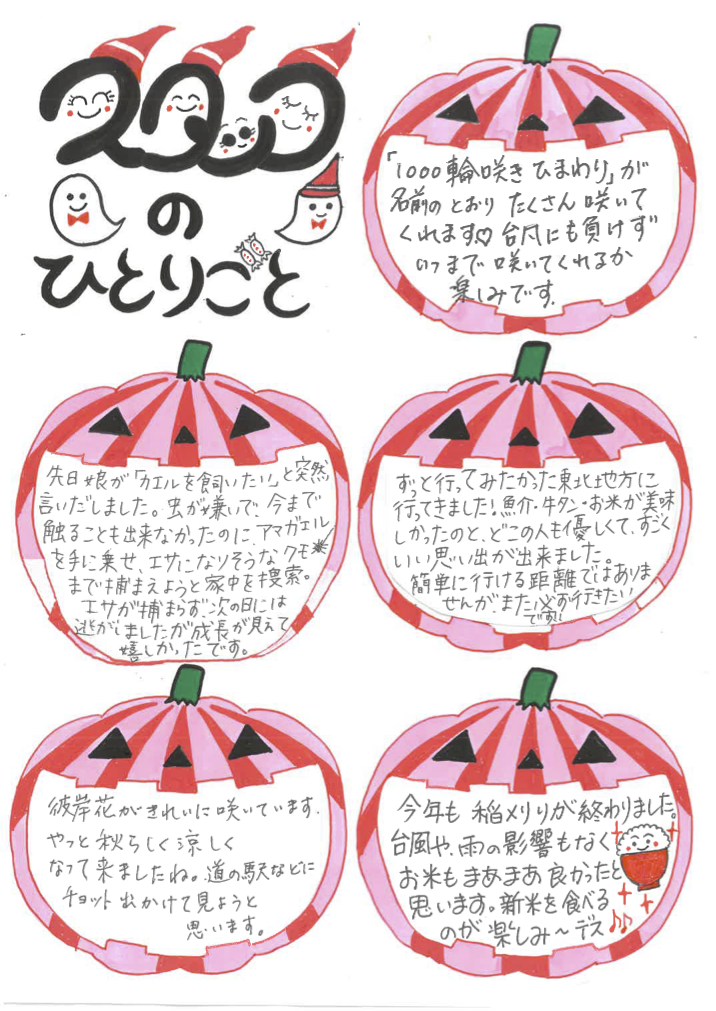 の
ひとりごと
「1000輪咲き ひまわり」が
名前の とおり たくさん 咲いて
くれます♡ 台風にも負けず
いつまで 咲いてくれるか
楽しみです.
先日娘が「カエルを飼いたい」と突然
言いだしました。虫が嫌いで、今まで
触ることも出来なかったのに、アマガエル
を手に乗せ、エサになりそうなクモ
まで捕まえようと家中を捜索。
エサが捕まらず次の日には
逃がしましたが成長が見えて
嬉しかったです。
ずっと行ってみたかった東北地方に
行ってきました!魚介・牛タン・お米が美味
しかったのと、どこの人も優しくて、すごく
いい思い出が出来ました。
簡単に行ける距離ではありま
せんが、また必ず行きたい
です!
彼岸花がきれいに咲いています.
やっと秋らしく涼しく
なって来ましたね。道の駅などに
チョット出かけて見ようと
思います。
今年も 稲刈りが終わりました。
台風や、雨の影響もなく
お米もまあまあ良かったと
思います。新米を食べる
のが楽しみ〜デス